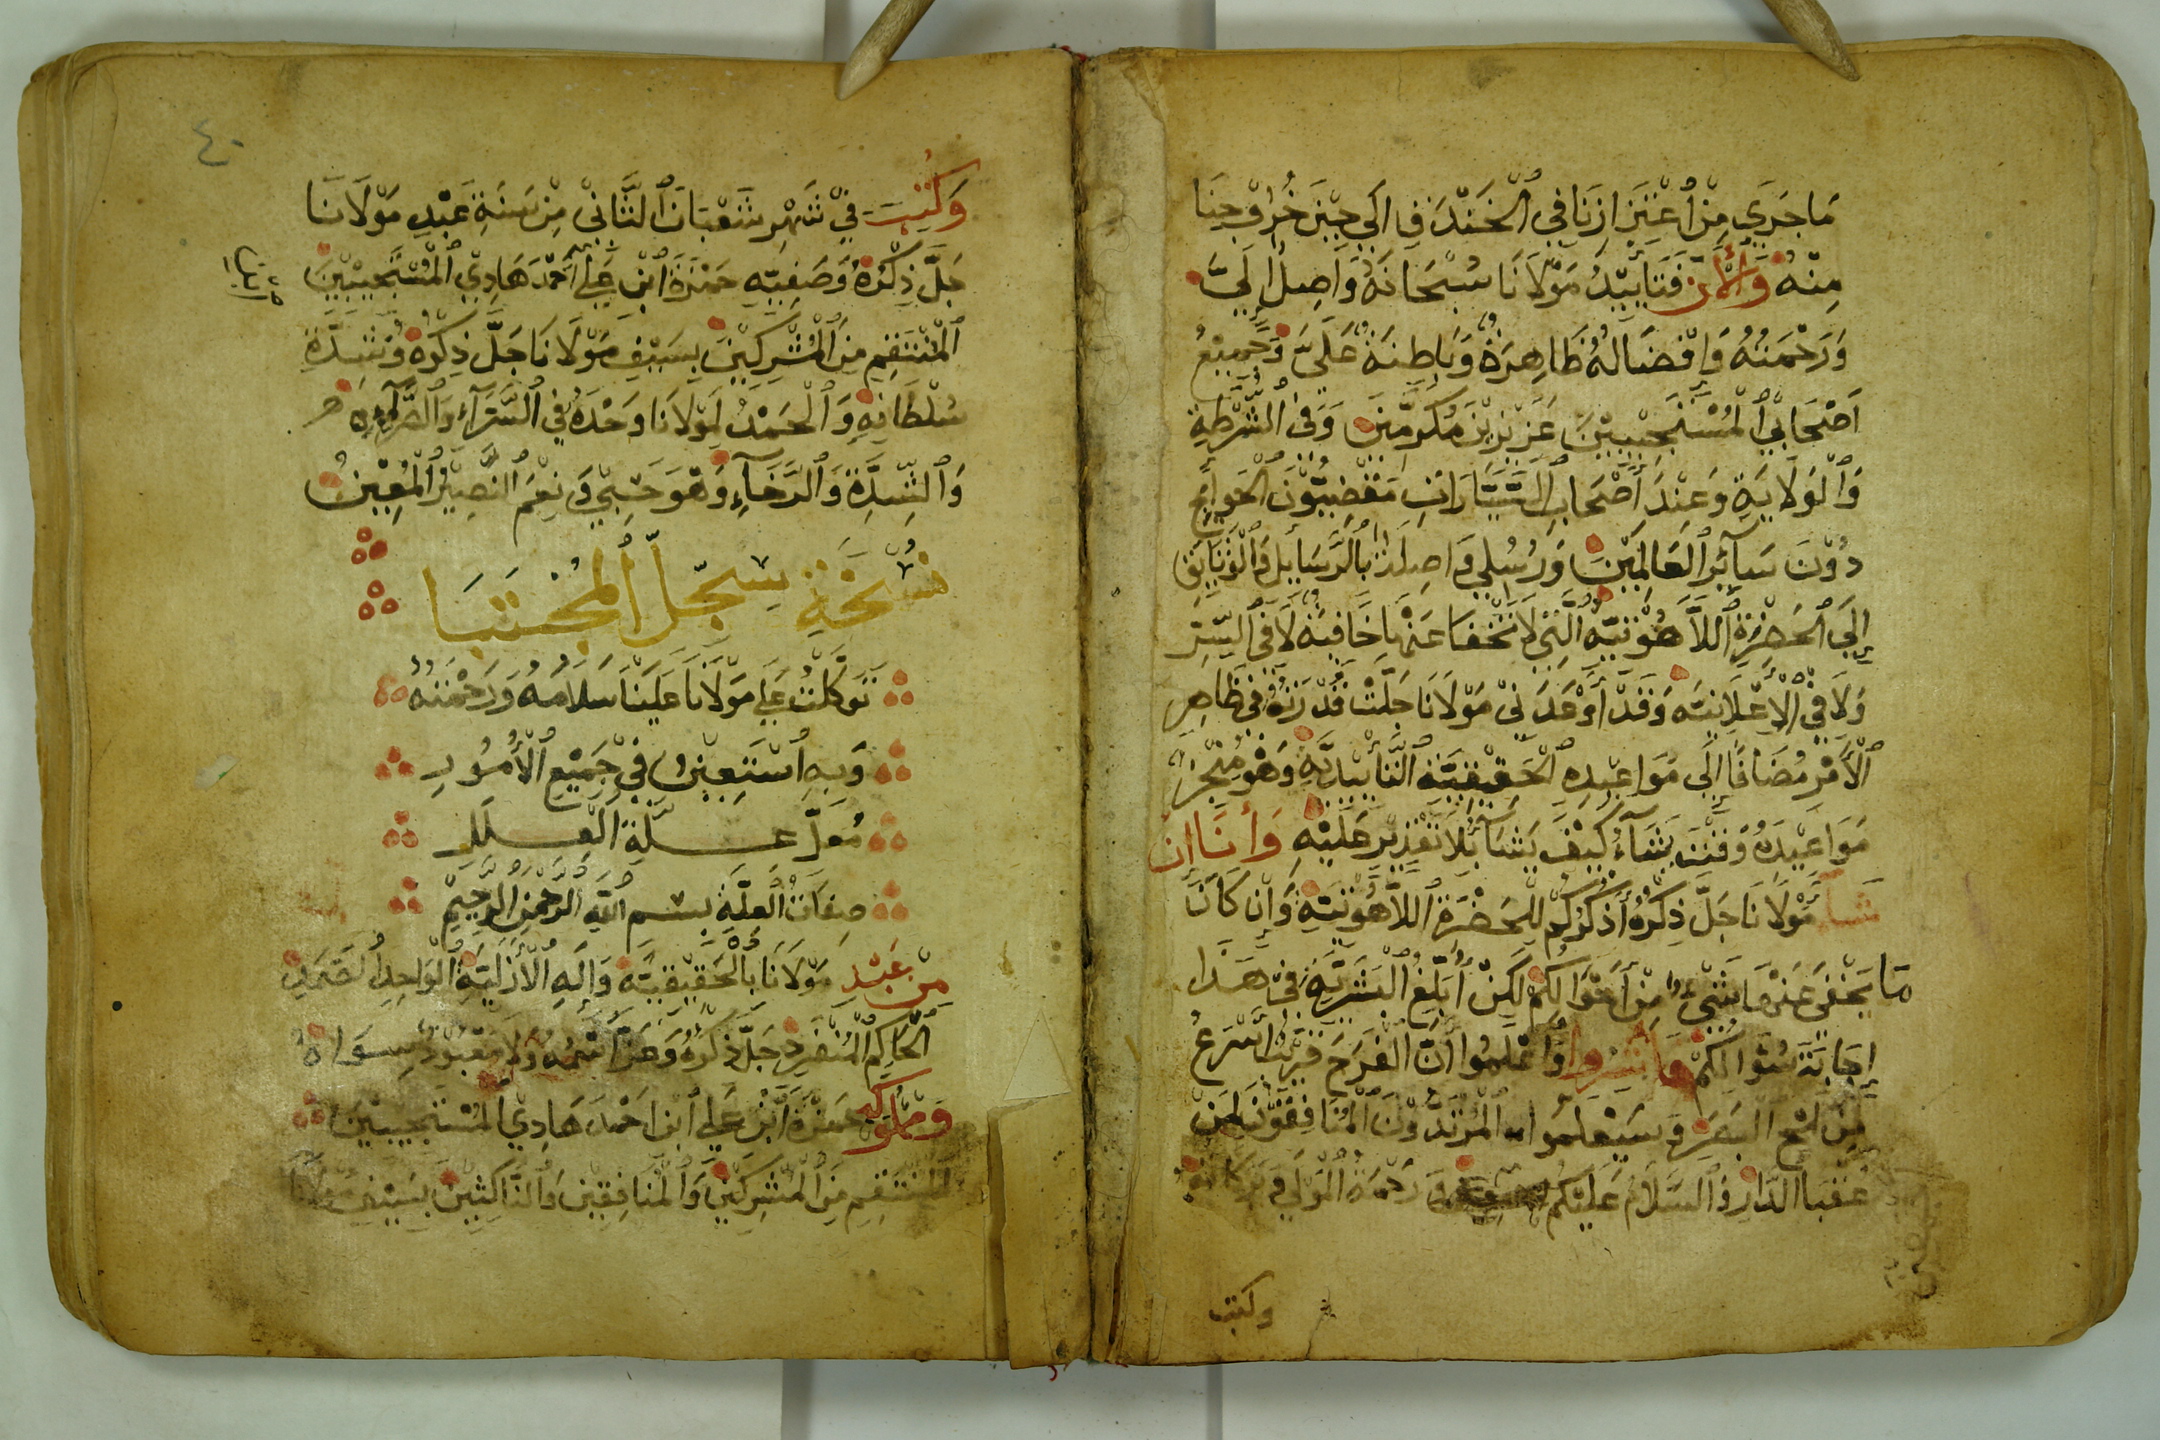 ما جري من اعتزازنا في الخندق الي حين خروجنا
منه والآن فتاييد مولانا سبحانه واصل اليّ
ورحمته وافضاله ظاهرة وباطنة عليّ وجميع
اصحابي المستجيبين عزيزين مكرمين وفي الشرطة
والولاية وعند أصحاب السيارات مقضيون الحوايج
دون سآئر العالمين ورسلي واصلة بالرسايل والوثايق
إلى الحضرة اللاهوتية التي لا تخفا عنها خافية لا في السر
ولا في الإعلانية وقد أوعدني مولانا جلت قدرته في ظاهر
الأمر مضافا الى مواعيده الحقيقية التأييدية وهو منجز
مواعيده وقت يشاء كيف يشا بلا تقدير عليه وأنا إن
شآ مولانا جل ذكره أذكركم للحضرة اللاهوتية وإن كان
ما يخفى عنها شيء من أحوالكم لكن أبلغ البشرية في هذا
إجابة سؤالكم فابشروا واعلموا أن الفرج قريب أسرع
من لمح البصر وسيعلموا المرتدون المنافقون لمن
عقبا الدار والسلام عليكم ورحمة المولى وبركاته
وكتبت
٤٠
وكتبت في شهر شعبان الثاني من سنة عبد مولانا
جل ذكره وصفيه حمزة ابن علي أحمد هادي المستجيبين
المنتقم من المشركين بسيف مولانا جل ذكره وشدة
سلطانه والحمد لمولانا وحده في السرآء والضرآء
والشدة والرخآء وهو حسبي ونعم النصير المعين
نسخة سجل المجتبا
توكلت على مولانا علينا سلامه ورحمته
وبه أستعين في جميع الأمور
معل علة العلل
صفات العلة بسم الله الرحمن الرحيم
من عبد مولانا بالحقيقية وإله الأزلية الواحد الصمد
الحاكم المنفرد جل ذكره وعز اسمه ولا معبود سواه
ومملوكه حمزة ابن علي ابن احمد هادي المستجيبين
المنتقم من المشركين والمنافقين والناكثين بسيف مولانا